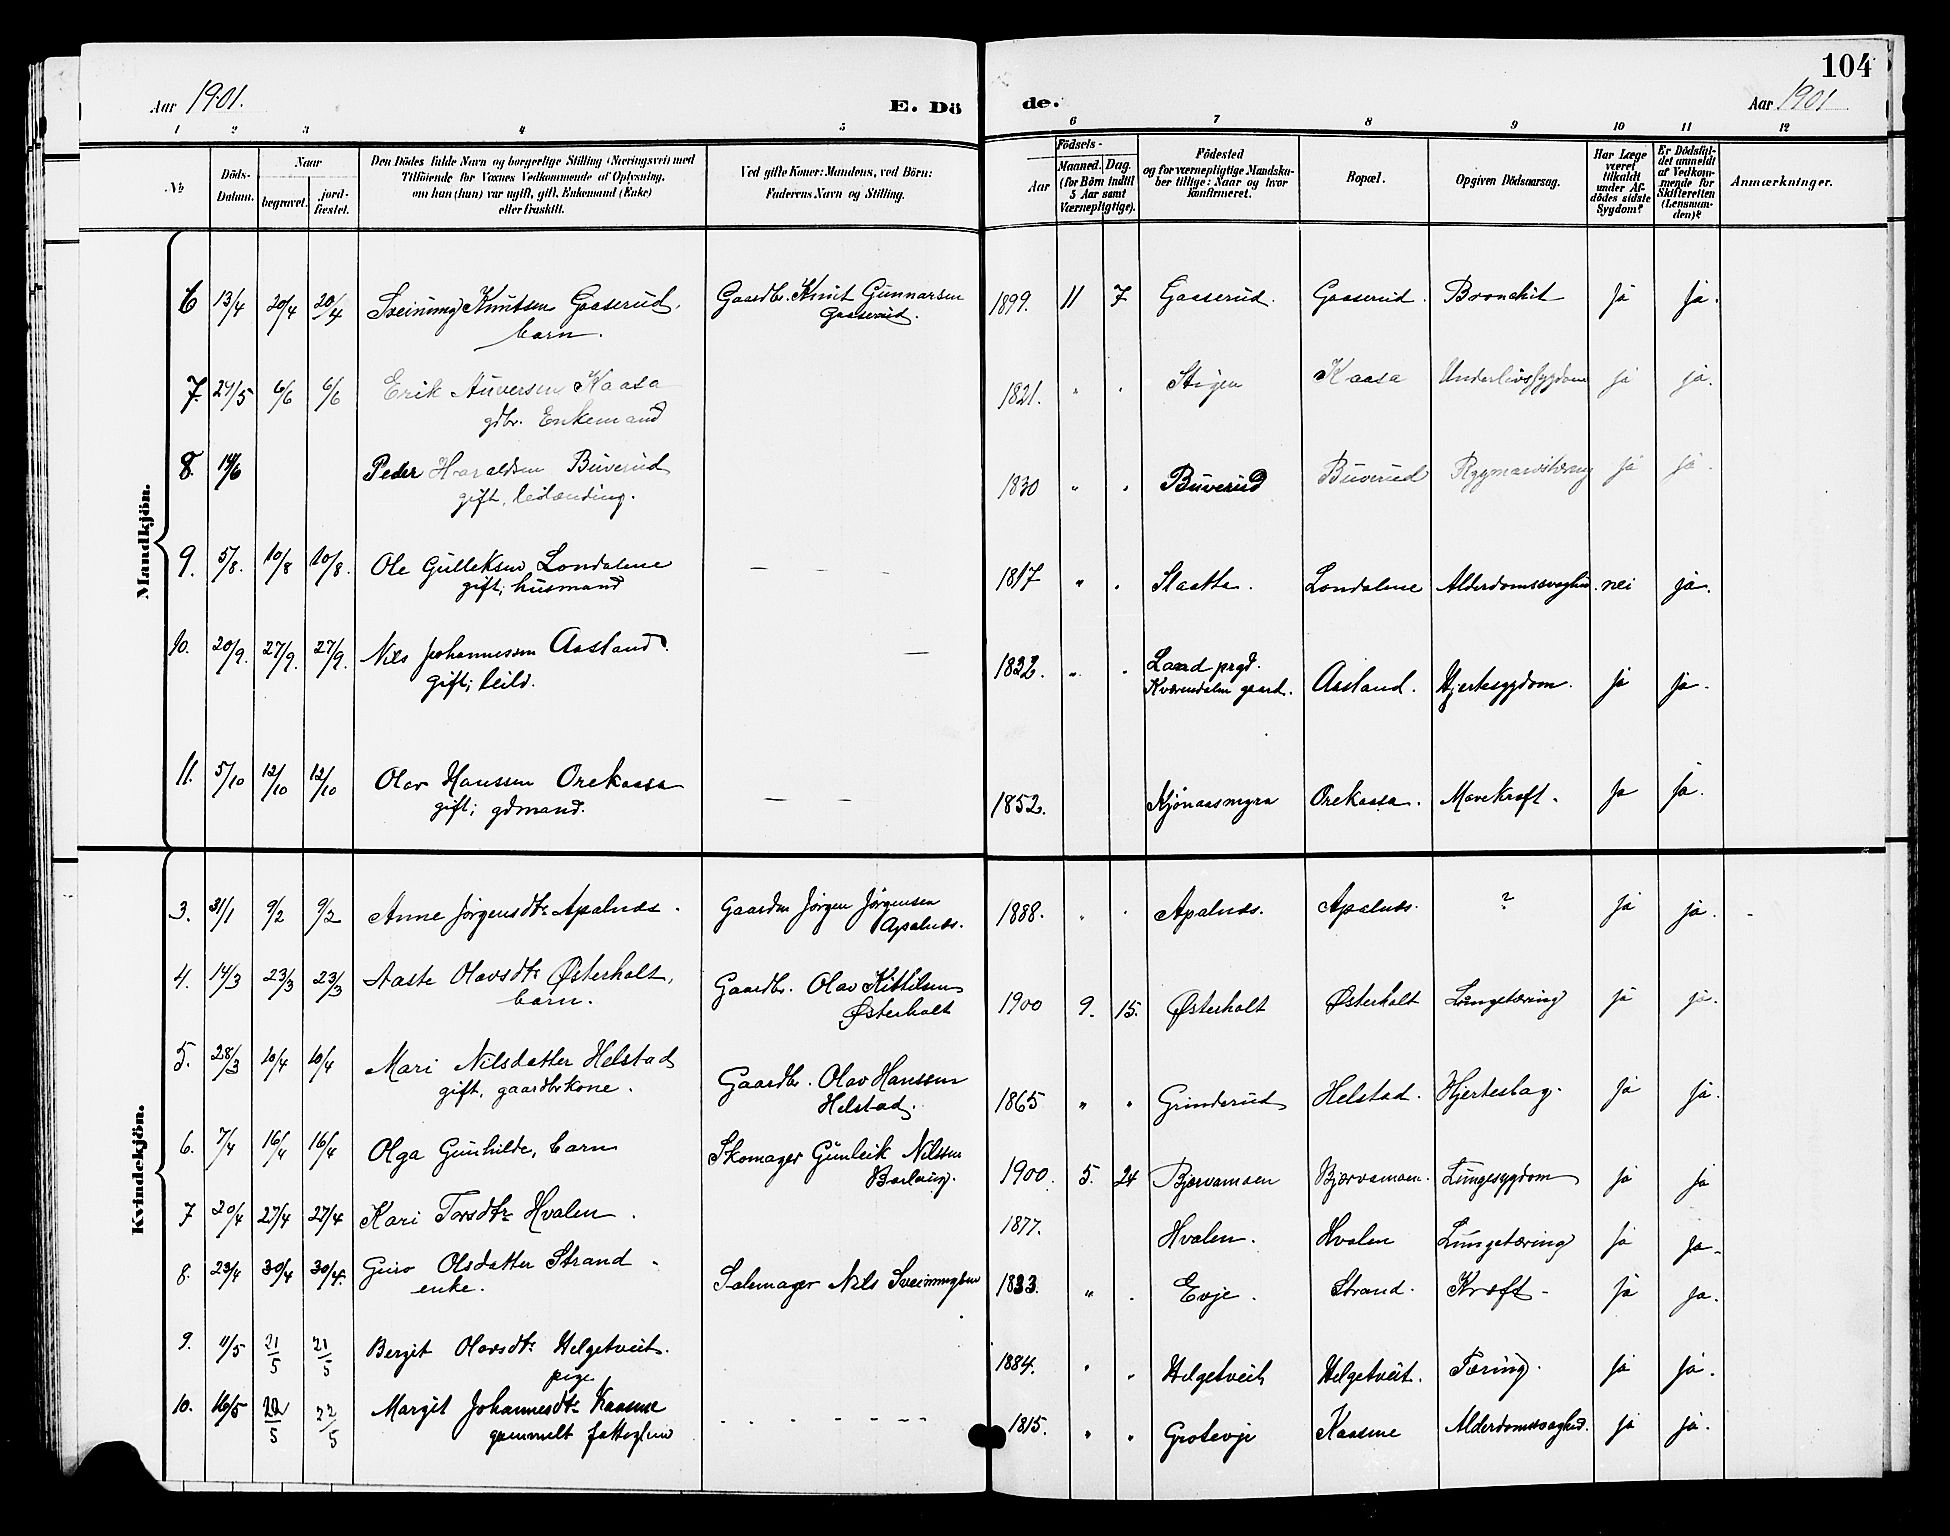 104
Aar 1901.
E. Döde.
Aar 1901
1 2 3 4 5 6 7 8 9 10 11 12
No
Döds-Datum.
Naar
begravet.
jord-fæstet.
Den Dödes fulde Navn og borgerlige Stilling (Næringsvei) med
Tilföiende for Voxnes Vedkommende af Oplysning,
om han (hun) var ugift, gift, Enkemand (Enke)
eller fraskilt.
Ved gifte Koner: Mandens, ved Börn:
Faderens Navn og Stilling.
Födsels-
Aar
Maaned. Dag.
(for Börn indtil
5 Aar samt
Værnepligtige).
Födested
og for værnepligtige Mandska-
ber tillige: Naar og hvor
konfirmeret.
Bopæl.
Opgiven Dödsaarsag.
Har Læge
været
tilkaldt
under Af-
dödes sidste
Sygdom?
Er Dödsfal-
det anmeldt
af Vedkom-
mende for
Skifteretten
(Lensman-
den)?
Anmærkninger.
Mandkjön.
6 13/4 20/4 20/4 Sveinung Knutsen Gaaserud, Gaardbr. Knut Gunnarsen 1899. 11 7 Gaaserud. Gaaserud. Bronchit ja ja.
barn. Gaaserud.
7. 24/5 6/6 6/6 Erik Auversen Kaasa 1821. " " Stigen Kaasa Underlivssygdom ja ja.
gdbr. Enkemand
8. 14/6 Peder Haraldsen Buverud 1830 " " Buverud Buverud ja ja.
gift, leilænding.
9. 5/8. 10/8 10/8. Ole Gulleksen Londalene — — 1817 " . Slaatta. Londalene Alderdomssvaghed. nei ja.
gift, husmand
10. 20/9. 27/9. 27/9. Nils Johannessen Aasland. — 1832. " . Land prgd. Aasland. Hjertesygdom. ja ja.
gift; leild. Kværndalen gaard.
11. 5/10 12/10 12/10 Olav Hanssen Orekaasa — — 1852. Kjönaasmyra Orekaasa. Mavekræft. ja ja.
gift; gdmand.
Kvindekjön.
3. 31/1 9/2 9/2 Anne Jørgensdtr Apalnæs. Gaardm Jørgen Jørgensen 1888. " " Apalnæs. Apalnæs. ? ja ja.
Apalnæs.
4. 14/3 23/3 23/3 Aaste Olavsdtr Østerholt, Gaardbr. Olav Kittilsen 1900 9. 15. Østerholt Østerholt Lungetæring ja ja.
barn. Østerholt
5. 28/3 10/4 10/4 Mari Nilsdatter Helstad Gaardbr. Olav Hanssen 1865 " " Grinderud Helstad. Hjerteslag. ja ja.
gift, gaardbrkone. Helstad.
6. 7/4 16/4 16/4 Olga Gunhilde, barn Skomager Gunleik Nilssen 1900. 5. 24 Bjærvamoen Bjærvamoen. Lungesygdom ja ja
7 20/4 27/4 27/4 Kari Torsdtr Hvalen. 1877. Hvalen. Hvalen Lungetæring ja ja.
8. 23/4 30/4 30/4. Guro Olsdatter Strand. Salemager Nils Sveinungsen 1833. " . Evje. Strand. Kræft. ja ja.
enke.
9. 11/5 21/5 21/5 Bergit Olavsdtr Helgetveit. 1884. " " Helgetveit Helgetveit. Tæring. ja ja.
pige
10. 16/5 22/5 22/5 Margit Johannesdtr Kaasene 1815. " " Grotevje Kaasene Alderdomssvaghed. ja ja.
gammelt fattiglem